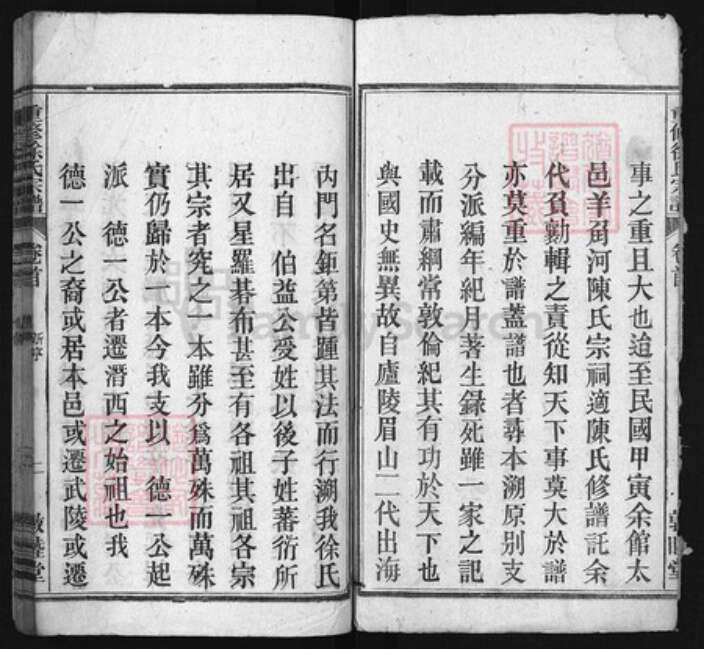 事之重且大也迨至民國甲寅余館太
邑羊角河陳氏宗祠適陳氏修譜託余
代負勷輯之責從知天下事莫大於譜
亦莫重於譜蓋譜也者尋本溯原別支
分派編年紀月著生錄死雖一家之記
載而肅綱常敦倫紀其有功於天下也
與國史無異故自廬陵眉山二代出海
內門名鉅第皆踵其法而行溯我徐氏
出自 伯益公受姓以後子姓蕃衍所
居又星羅碁布甚至有各祖其祖各宗
其宗者究之一本雖分爲萬殊而萬殊
實仍歸於一本今我支以 德一公起
派 德一公者遷潛西之始祖也我
德一公之裔或居本邑或遷武陵或遷
重修徐氏宗譜
卷首
新序
一
敦睦堂
FamilySearch